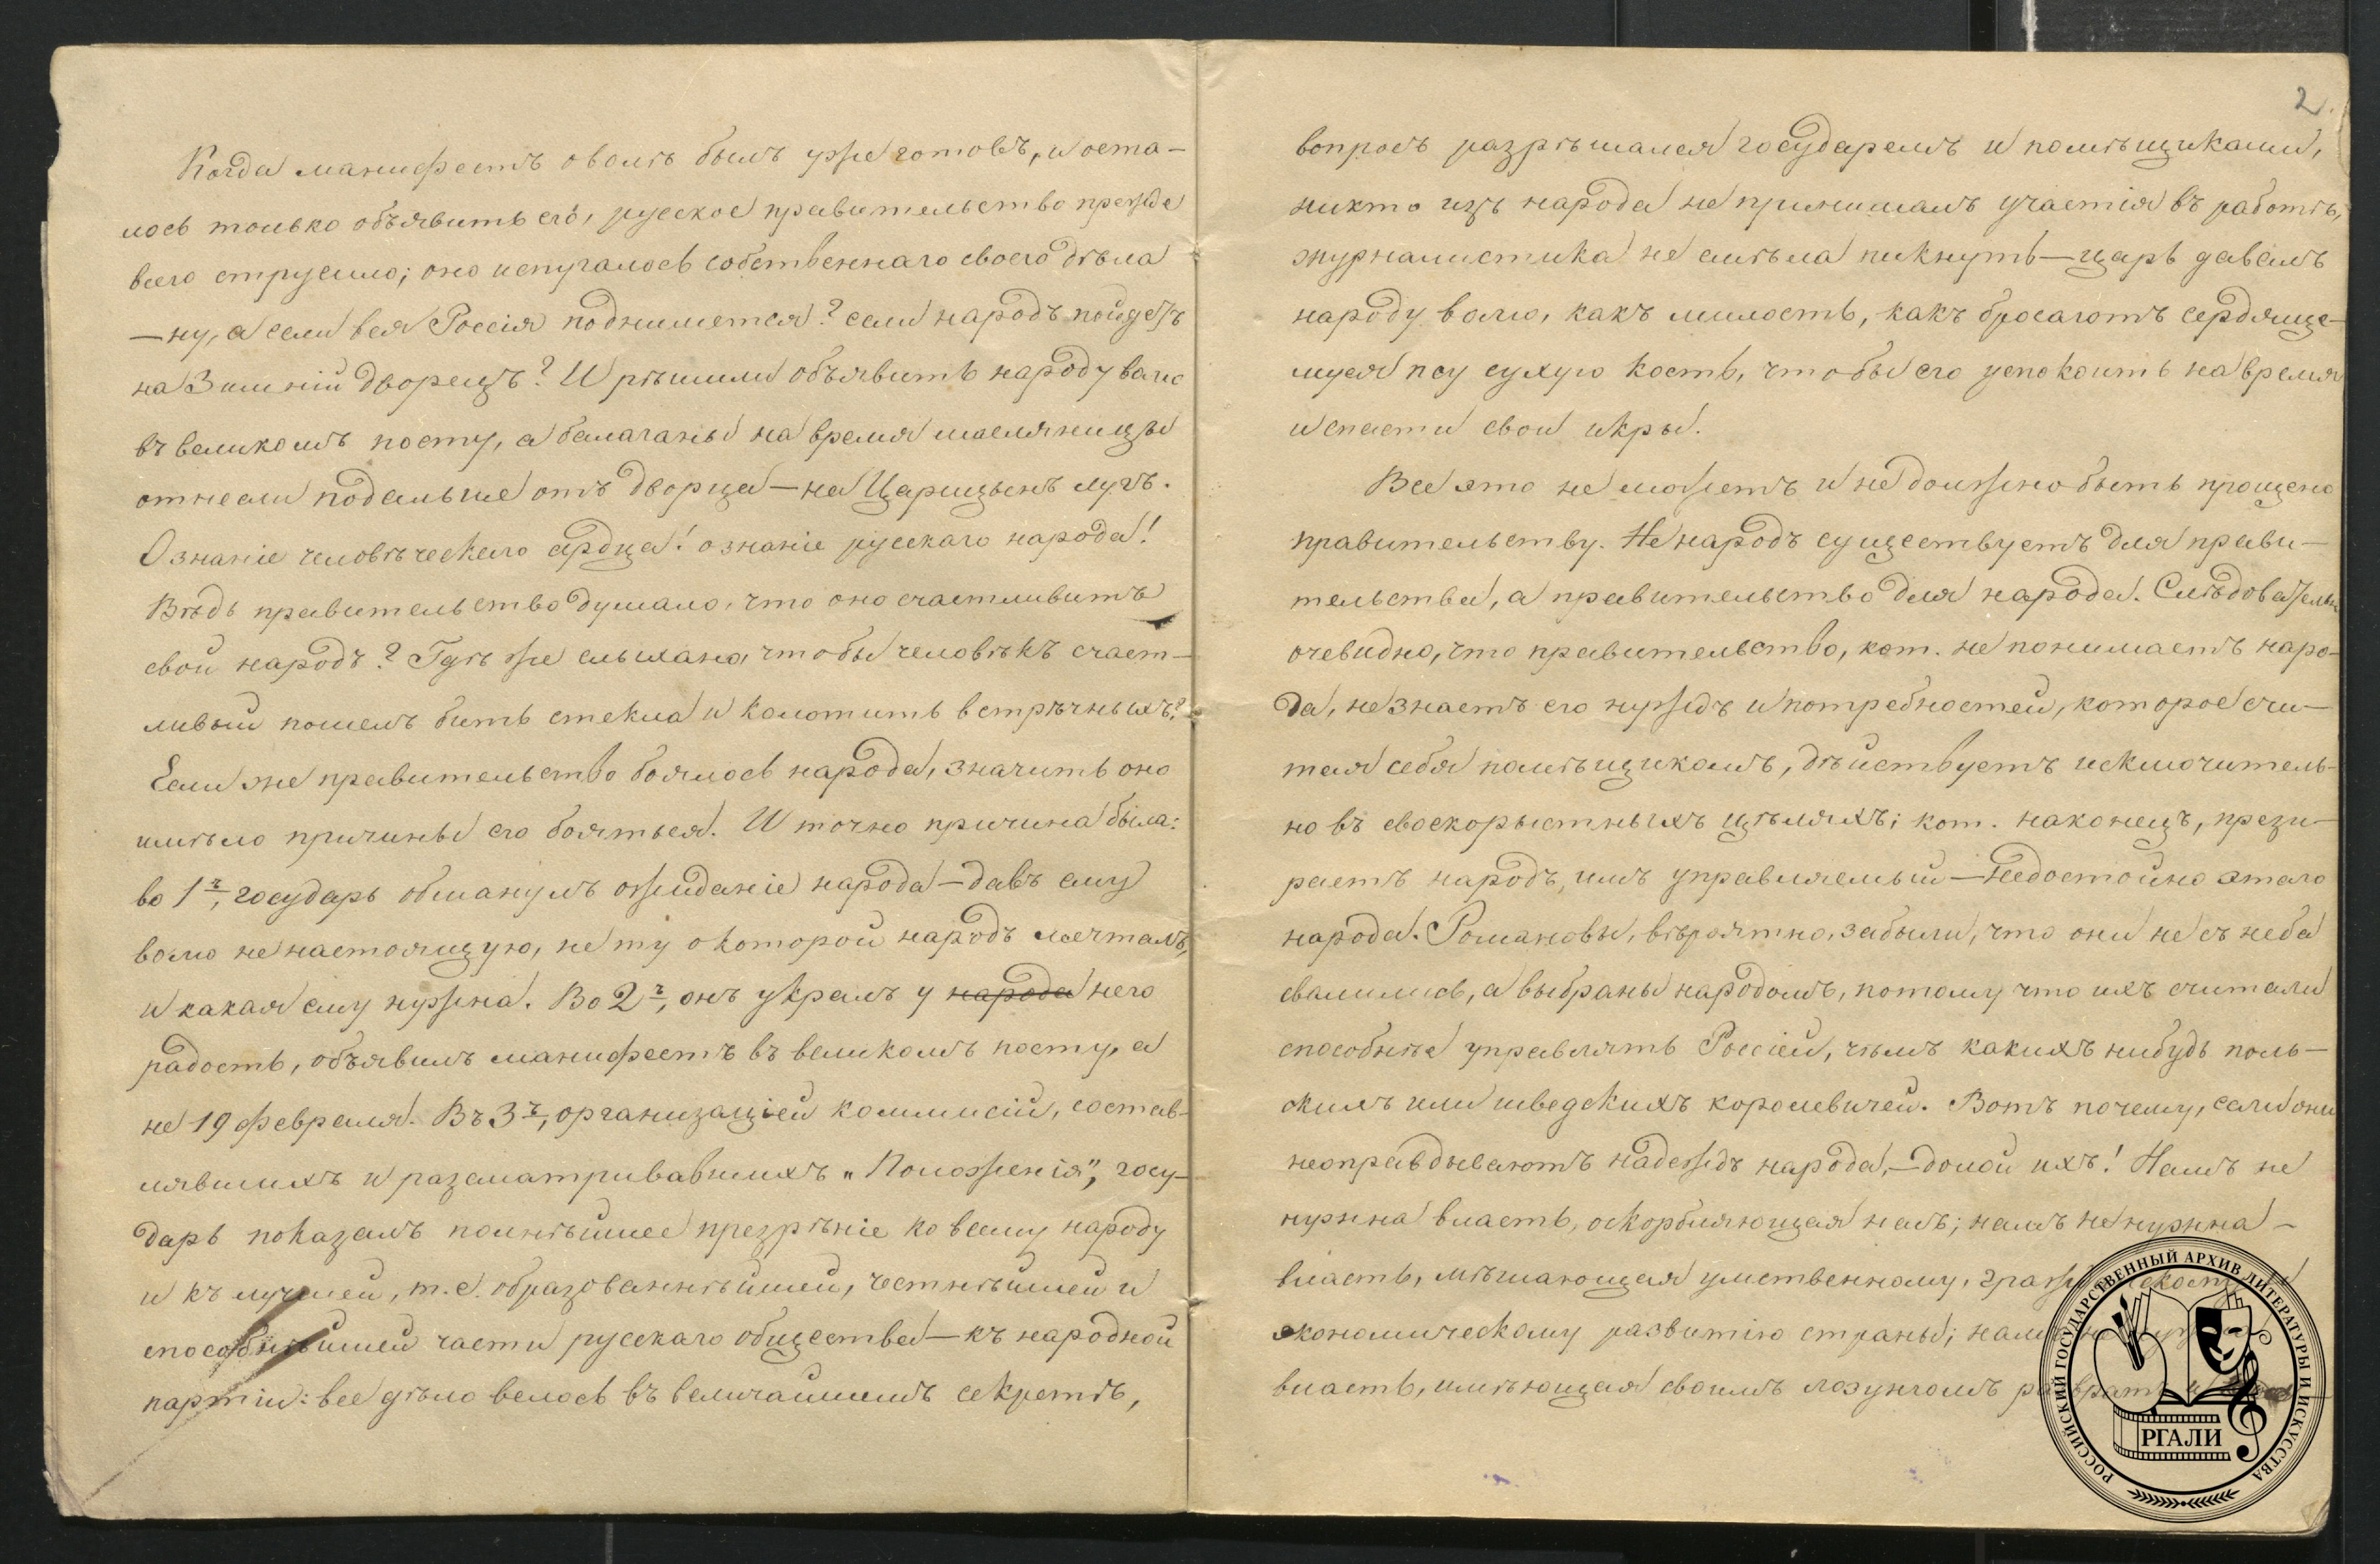 Когда манифестъ о волѣ былъ уже готовъ, и оста-
лось только объявить его, русское правительство прежде
всего струсило; оно испугалось собственнаго своего дѣла
— ну, а если вся Россія поднимется? если народъ пойдетъ
на Зимній дворецъ? И рѣшили объявить народу волю
въ великомъ посту, а балаганы на время масляницы
отнесли подальше отъ дворца — на Царицынъ лугъ.
О знаніе человѣческаго сердца! о знаніе русскаго народа!
Вѣдь правительство думало, что оно счастливитъ
свой народъ? Гдѣ же слыхано, чтобы человѣкъ счаст-
ливый пошелъ бить стекла и колотить встрѣчныхъ?
Если же правительство боялось народа, значитъ оно
имѣло причины его бояться. И точно причина была:
во 1ᵡ, государь обманулъ ожиданіе народа — давъ ему
волю не настоящую, не ту о которой народъ мечталъ,
и какая ему нужна. Во 2ᵡ, онъ укралъ у народа него
радость, объявилъ манифестъ въ великомъ посту, а
не 19 февраля. Въ 3ᵡ, организаціей коммисій, состав-
лявшихъ и разсматривавшихъ „Положенія", госу-
дарь показалъ полнѣйшее презрѣніе ко всему народу
и къ лучшей, т. е. образованнѣйшей, честнѣйшей и
способнѣйшей части русскаго общества — къ народной
партіи: все дѣло велось въ величайшемъ секретѣ,
2.
вопросъ разрѣшался государемъ и помѣщиками,
никто изъ народа не принималъ участія въ работѣ,
журналистика не смѣла пикнуть — царь давалъ
народу волю, какъ милость, какъ бросаютъ сердяще-
муся псу сухую кость, чтобы его успокоить на время
и спасти свои икры.
Все это не можетъ и не должно быть прощено
правительству. Не народъ существуетъ для прави-
тельства, а правительство для народа. Слѣдовательн
очевидно, что правительство, кот. не понимаетъ наро-
да, не знаетъ его нуждъ и потребностей, которое счи-
тая себя помѣщикомъ, дѣйствуетъ исключитель-
но въ своекорыстныхъ цѣляхъ; кот. наконецъ, прези-
раетъ народъ, имъ управляемый — недостойно этого
народа. Романовы, вѣроятно, забыли, что они не съ неба
свалились, а выбраны народомъ, потому что ихъ считали
способнѣе управлять Россіей, чѣмъ какихъ нибудь поль-
скихъ или шведскихъ королевичей. Вотъ почему, если они
неоправдываютъ надеждъ народа, — долой ихъ! Намъ не
нужна власть, оскорбляющая насъ; намъ не нужна -
власть, мѣшающая умственному, граж
экономическому развитію страны; намъ
власть, имѣющая своимъ лозунгомъ развратъ и
РОССИЙСКИЙ ГОСУДАРСТВЕННЫЙ АРХИВ ЛИТЕРАТУРЫ И ИСКУССТВА
РГАЛИ